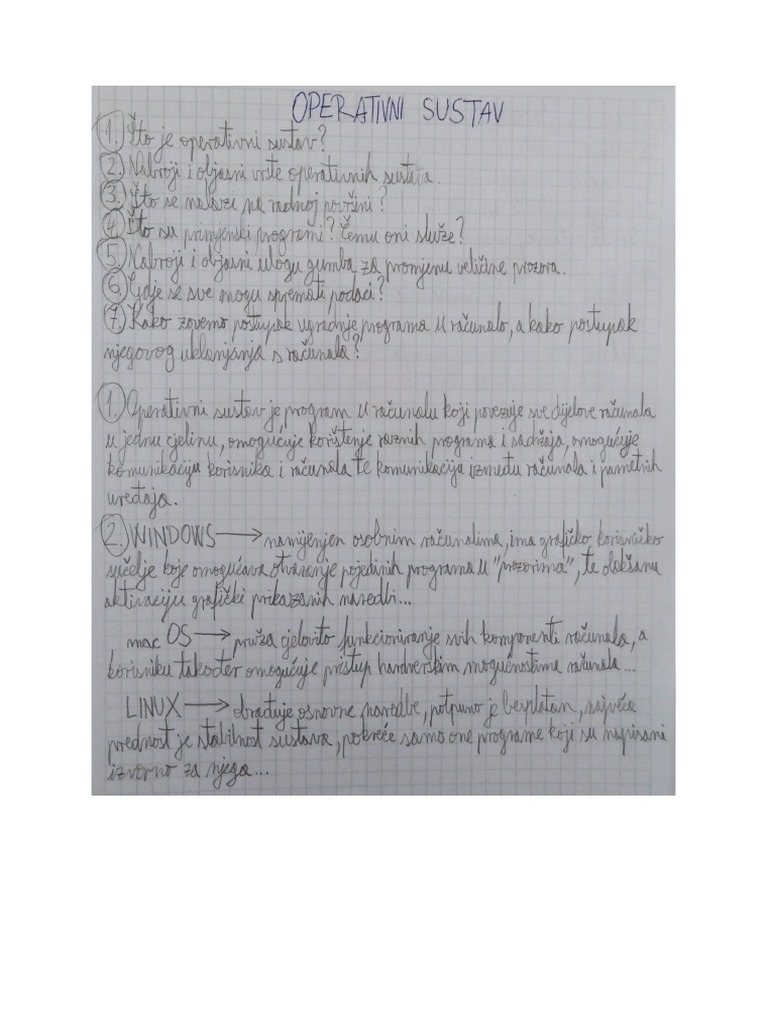 OPERATIVNI SUSTAV
1. Što je operativni sustav?
2. Nabroji i objasni vrste operativnih sustava.
3. Što se nalazi na radnoj površini?
4. Što su primjenski programi? Čemu oni služe?
5. Nabroji i objasni ulogu gumba za promjenu veličine prozora.
6. Gdje se sve mogu spremati podaci?
7. Kako zovemo postupak ugradnje programa u računalo, a kako postupak
njegovog uklanjanja s računala?
1. Operativni sustav je program u računalu koji povezuje sve dijelove računala
u jednu cjelinu, omogućuje korištenje raznih programa i sadržaja, omogućuje
komunikaciju korisnika i računala te komunikacija između računala i pametnih
uređaja.
2. WINDOWS → namijenjen osobnim računalima, ima grafičko korisničko
sučelje koje omogućava otvaranje pojedinih programa u "prozorima", te olakšanu
aktivaciju grafički prikazanih naredbi...
mac OS → pruža cjelovito funkcioniranje svih komponenti računala, a
korisniku također omogućuje pristup hardverskim mogućnostima računala...
LINUX → obrađuje osnovne naredbe, potpuno je besplatan, najveća
prednost je stabilnost sustava, pokreće samo one programe koji su napisani
izvorno za njega...